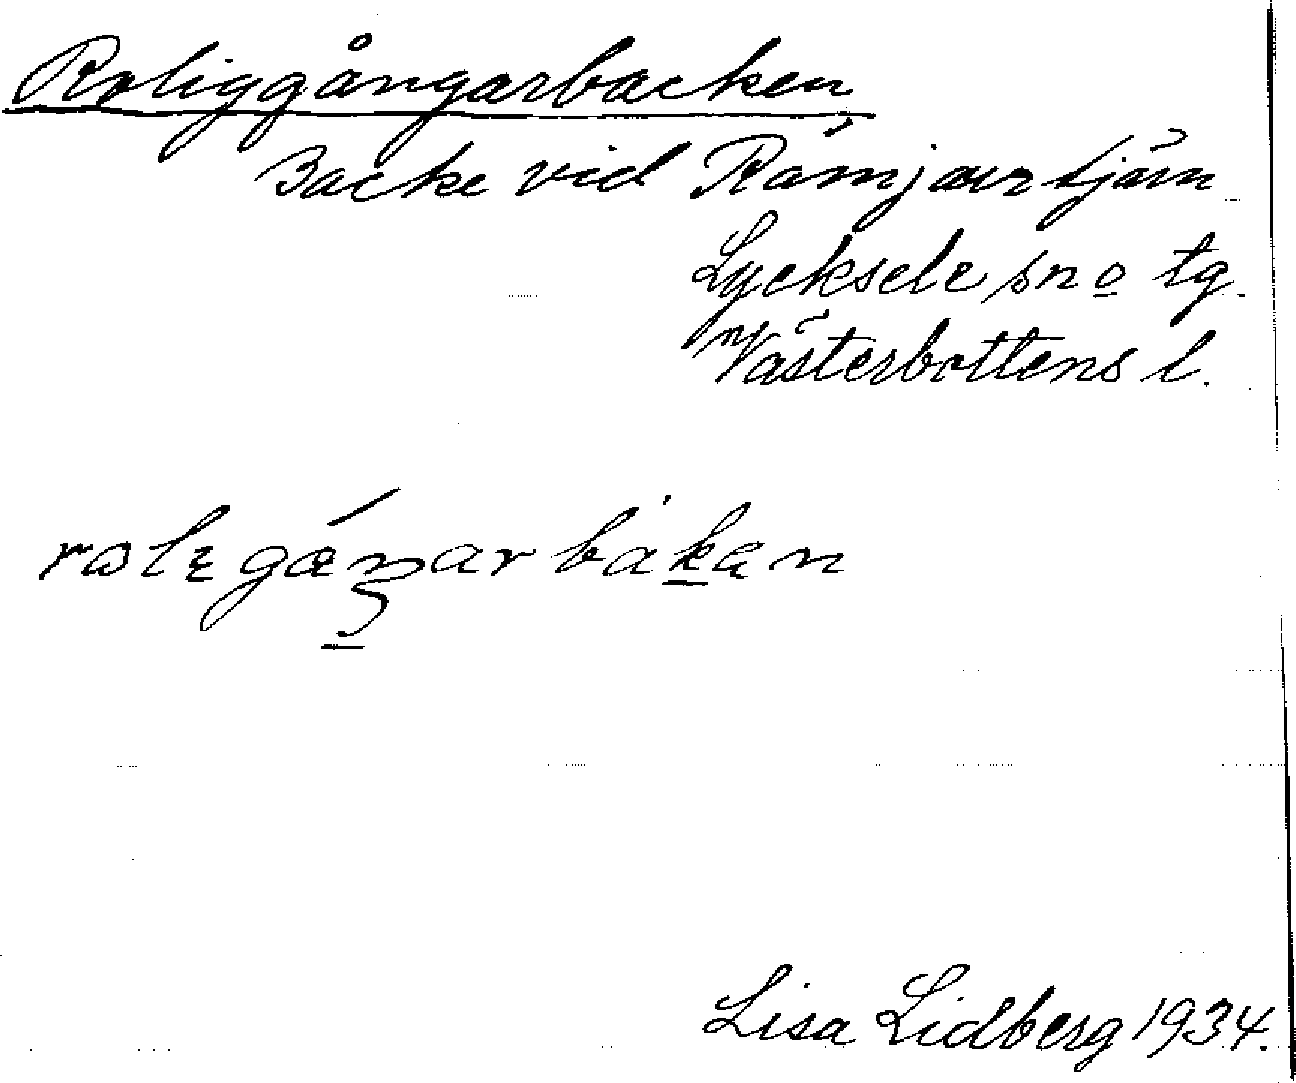 Roliggångarbacken
Backe vid Rámjaurtjärn
Lycksele sn o tg.
Västerbottens l.
Lisa Lidberg 1934.